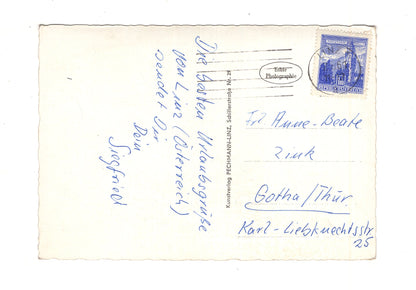 Die besten Urlaubsgrüße
von Linz (Österreich)
sendet Dir
Dein
Siegfried
Kunstverlag PECHMANN-LINZ, Schillerstraße Nr. 39
Echte
Photographie
Frl. Anne-Beate
Zink
Gotha/Thür.
Karl-Liebknechtsstr.
25